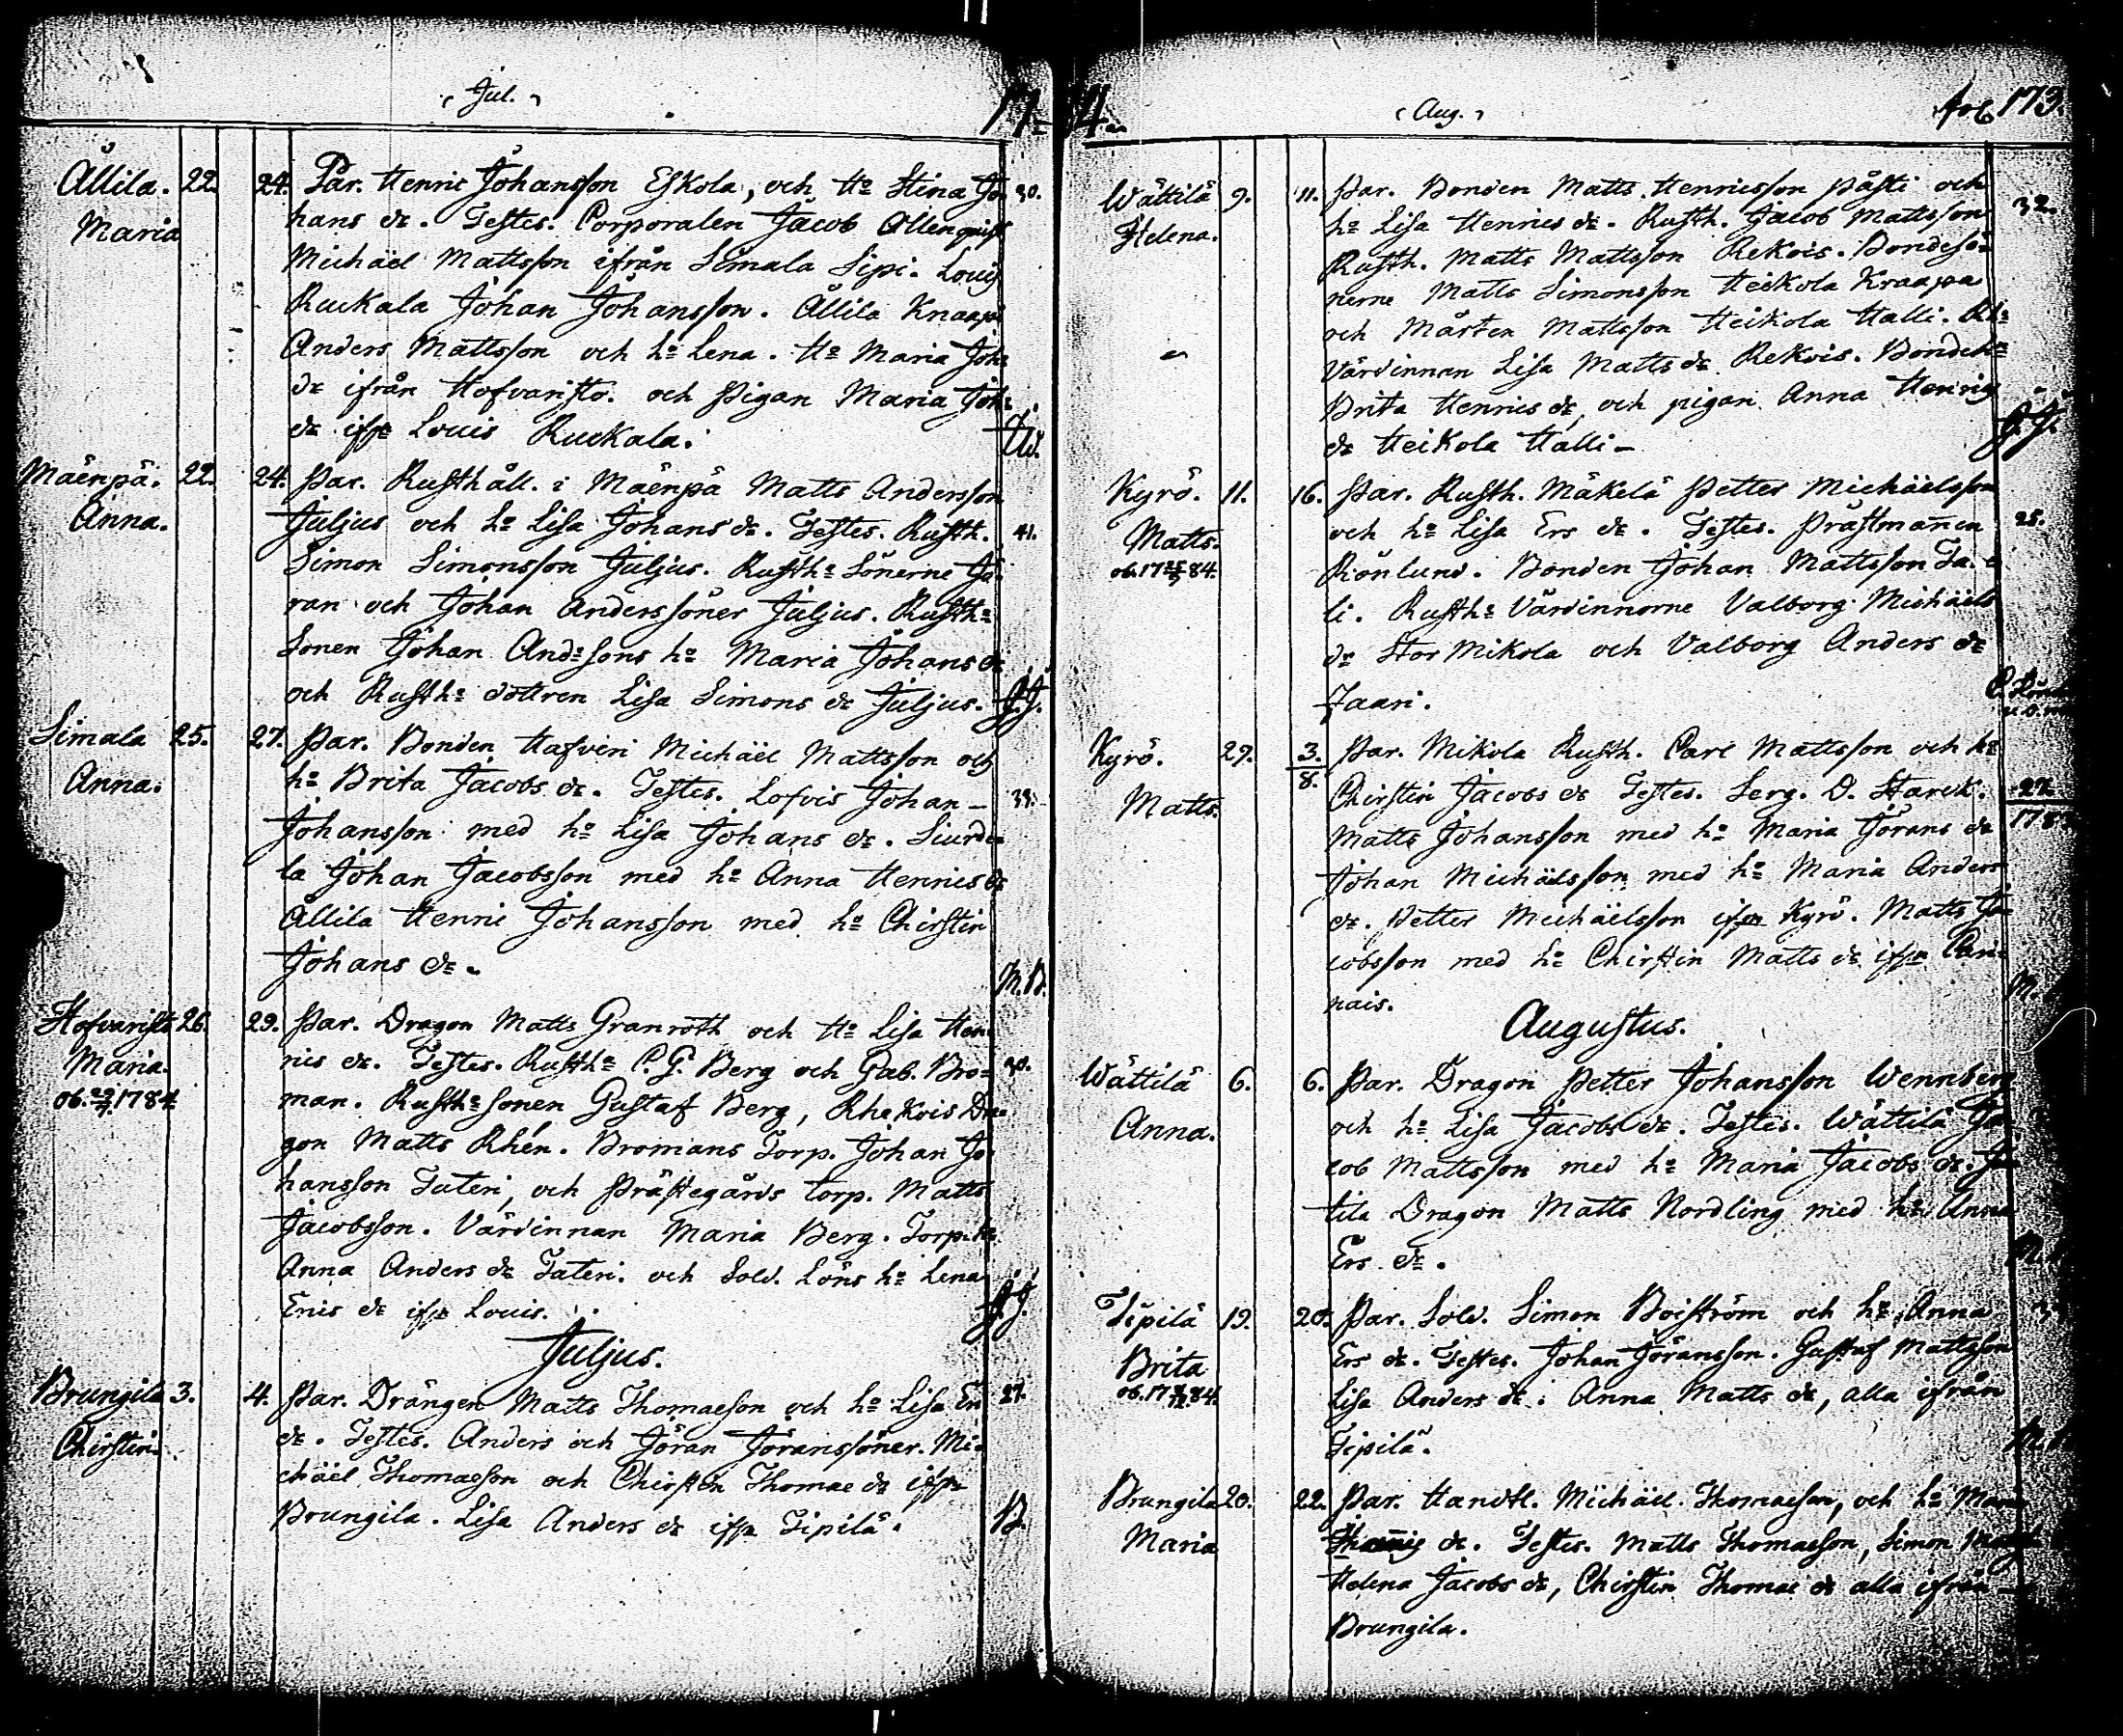 Jul.
17 84.
Ållila. 22. 24. Par. Henric Johansson Eskola, och Ho Stina Jo- 30.
Maria hans dr. Testes. Corporalen Jacob Allenqvist
Michäel Mattsson ifrån Simala Sipi. Louis
Ruckala Johan Johansson. Ållila Knaapi
Anders Mattsson och ho Lena. Ho Maria Joh:
dr ifrån Hofvaristo. och Pigan Maria Joh:
dr ifrn Louis Ruckala.
Mäenpä. 22. 24. Par. Rusthåll. i Mäenpä Matts Andersson
Anna. Juljus och ho Lisa Johans dr. Testes. Rusth. 41.
Simon Simonsson Juljus. Rusth: Sönerne Jö-
ran och Johan Anderssöner Juljus. Rusth:
Sonen Johan And:sons ho Maria Johans dr
och Rusth: dottren Lisa Simons dr Juljus. J.J.
Simala 25. 27. Par. Bonden Hafveri Michäel Mattsson och
Anna. ho Brita Jacobs dr. Testes. Lofvis Johan
Johansson med ho Lisa Johans dr. Siurde-
la Johan Jacobsson med ho Anna Henrics dr
Ållila Henric Johansson med ho Chirstin
Johans dr. M.B.
Hofvaristo 26. 29. Par. Dragon Matts Granroth och Ho Lisa Hen-
Maria. rics dr. Testes. Rusth: C.G. Berg och Gab. Bro- 30.
ob. 1784 man. Rusth: sonen Gustaf Berg, Rhekois Dra-
gon Matts Rhén. Bromans Torp. Johan Jo-
hansson Tateri, och Prästegårds torp. Matts
Jacobsson. Värdinnan Maria Berg. Torp. ho
Anna Anders dr Tateri. och Sold. Löns ho Lena
Erics dr ifrn Louis. J.J.
Juljus.
Brungila 3. 4. Par. Drängen Matts Thomasson och ho Lisa Er 27.
Chirstin. dr. Testes. Anders och Jöran Jöranssöner. Mi-
chäel Thomasson och Chirstin Thomae dr ifrn
Brungila. Lisa Anders dr ifrn Tipilä. B.
Aug.
173.
Wättilä 9. 11. Par. Bonden Matts Henricsson Påsti och 32.
Helena. ho Lisa Henrics dr. Rusth. Jacob Mattsson
Rusth. Matts Mattsson Rekois. Bondesö-
nerne Matts Simonsson Heikola Kraapa
och Mårten Mattsson Heikola Halli. Rh:
Värdinnan Lisa Matts dr Rekois. Bondeho
Brita Henrics dr, och pigan Anna Henrics
dr Heikola Halli J.J.
Kyrö. 11. 16. Par. Rusth. Mäkelä Petter Michäelsson
Matts. och ho Lisa Ers dr. Testes. Prästmannen 25.
ob. 17 84. Rönlund. Bonden Johan Mattsson Ta-
li. Rusth: Värdinnorne Valborg Michäels
dr Stor Mikola och Valborg Anders dr
Jaari.
Kyrö. 29. 3. Par. Mikola Rusth. Carl Mattsson och ho
8.
Matts. Chirstin Jacobs dr Testes. Serg. D. Starck. 27
Matts Johansson med ho Maria Jörans dr
Johan Michäelsson med ho Maria Anders
dr. Petter Michäelsson ifrn Kyrö. Matts Ja-
cobsson med ho Chirstin Matts dr ifrn Cari-
nais.
Augustus.
Wättilä 6. 6. Par. Dragon Petter Johansson Wennberg
Anna. och ho Lisa Jacobs dr. Testes. Wättilä Ja-
cob Mattsson med ho Maria Jacobs dr.
tila Dragon Matts Nordling med ho Anna
Ers dr.
Tipilä 19. 20. Par. Sold. Simon Boiström och ho Anna
Brita Ers dr. Testes. Johan Jöransson. Gustaf Mattsson
ob. 17 84. Lisa Anders dr. Anna Matts dr, alla ifrån
Tipilä.
Brungila 20. 22. Par. Handtl. Michäel Thomasson, och ho Maria
Maria dr. Testes. Matts Thomasson, Simon
Helena Jacobs dr, Chirstin Thomae dr alla ifrån
Brungila.